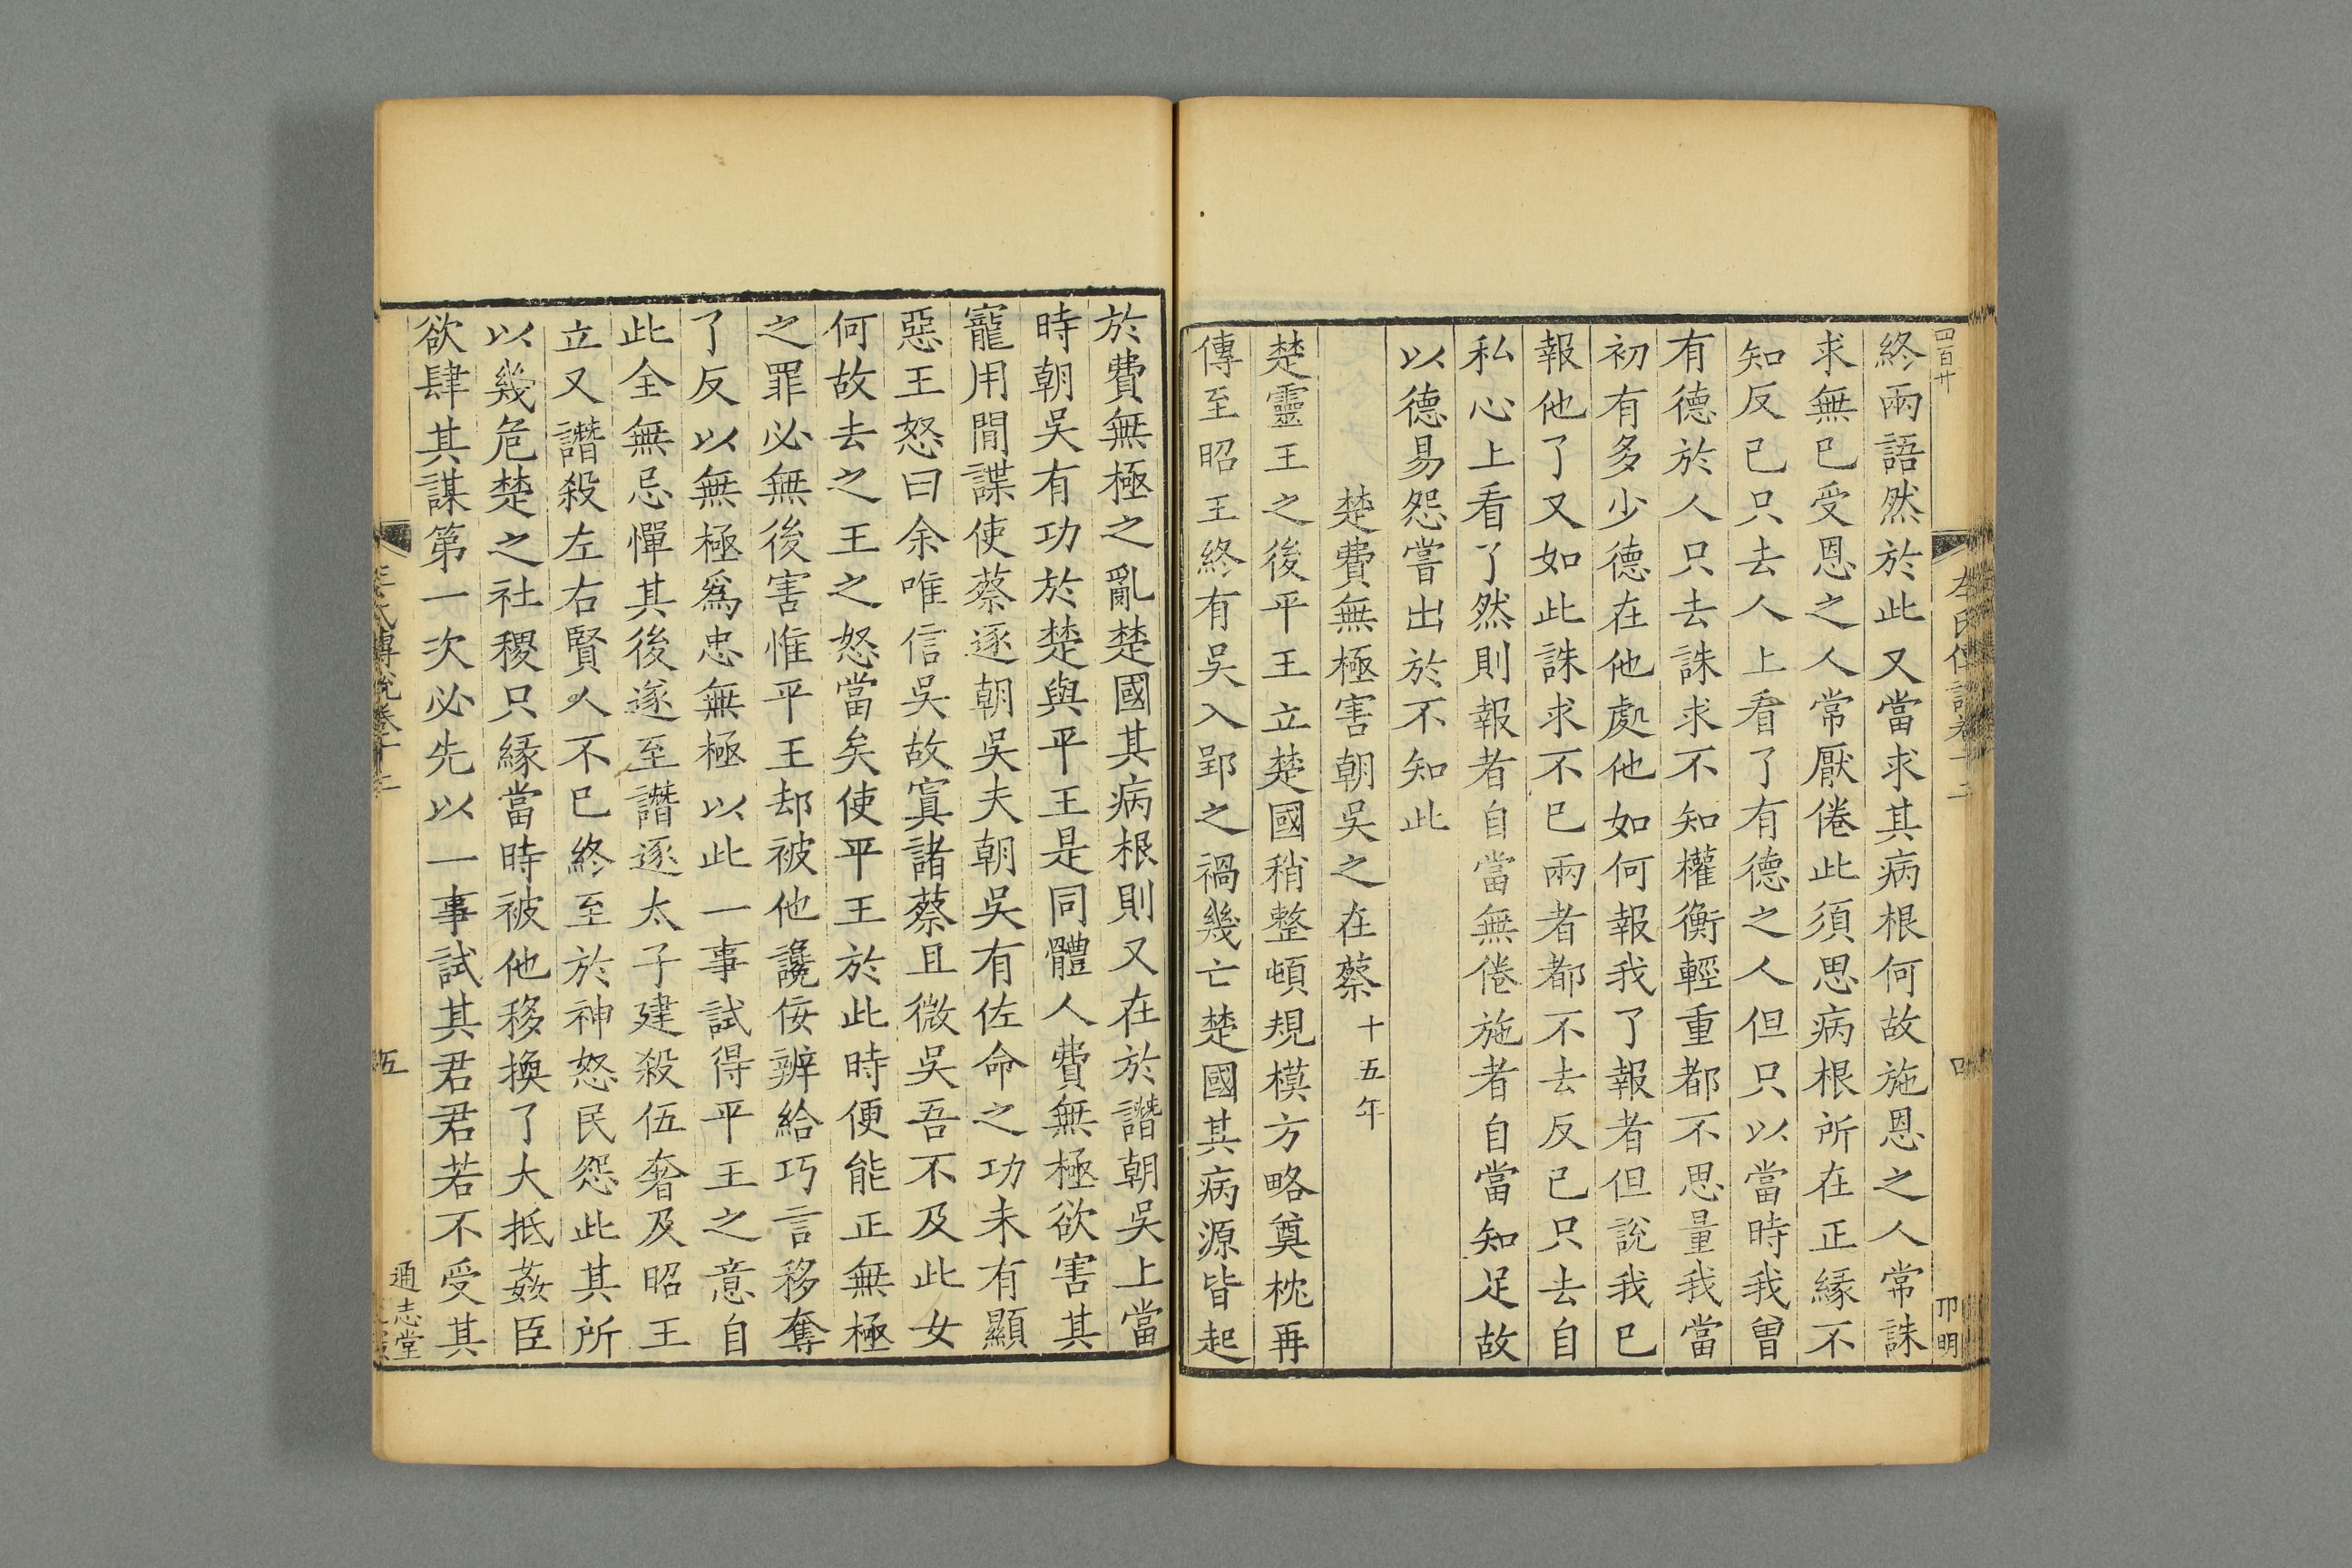 四百廿
終兩語然於此又當求其病根何故施恩之人常誅
求無已受恩之人常厭倦此須思病根所在正緣不
知反已只去人上看了有德之人但只以當時我曾
有德於人只去誅求不知權衡輕重都不思量我當
初有多少德在他處他如何報我了報者但說我已
報他了又如此誅求不已兩者都不去反已只去自
私心上看了然則報者自當無倦施者自當知足故
以德易怨嘗出於不知此
楚費無極害朝吳之在蔡十五年
楚靈王之後平王立楚國稍整頓規模方略奠枕再
傳至昭王終有吳入郢之禍幾亡楚國其病源皆起
於費無極之亂楚國其病根則又在於譖朝吳上當
時朝吳有功於楚與平王是同體人費無極欲害其
寵用間諜使蔡逐朝吳夫朝吳有佐命之功未有顯
惡王怒曰余唯信吳故寘諸蔡且微吳吾不及此女
何故去之王之怒當矣使平王於此時便能正無極
之罪必無後害惟平王却被他讒佞辨給巧言移奪
了反以無極爲忠無極以此一事試得平王之意自
此全無忌憚其後遂至譖逐太子建殺伍奢及昭王
立又譖殺左右賢人不已終至於神怒民怨此其所
以幾危楚之社稷只緣當時被他移換了大抵姦臣
欲肆其謀第一次必先以一事試其君君若不受其
氏傳說卷十二
五
通志堂